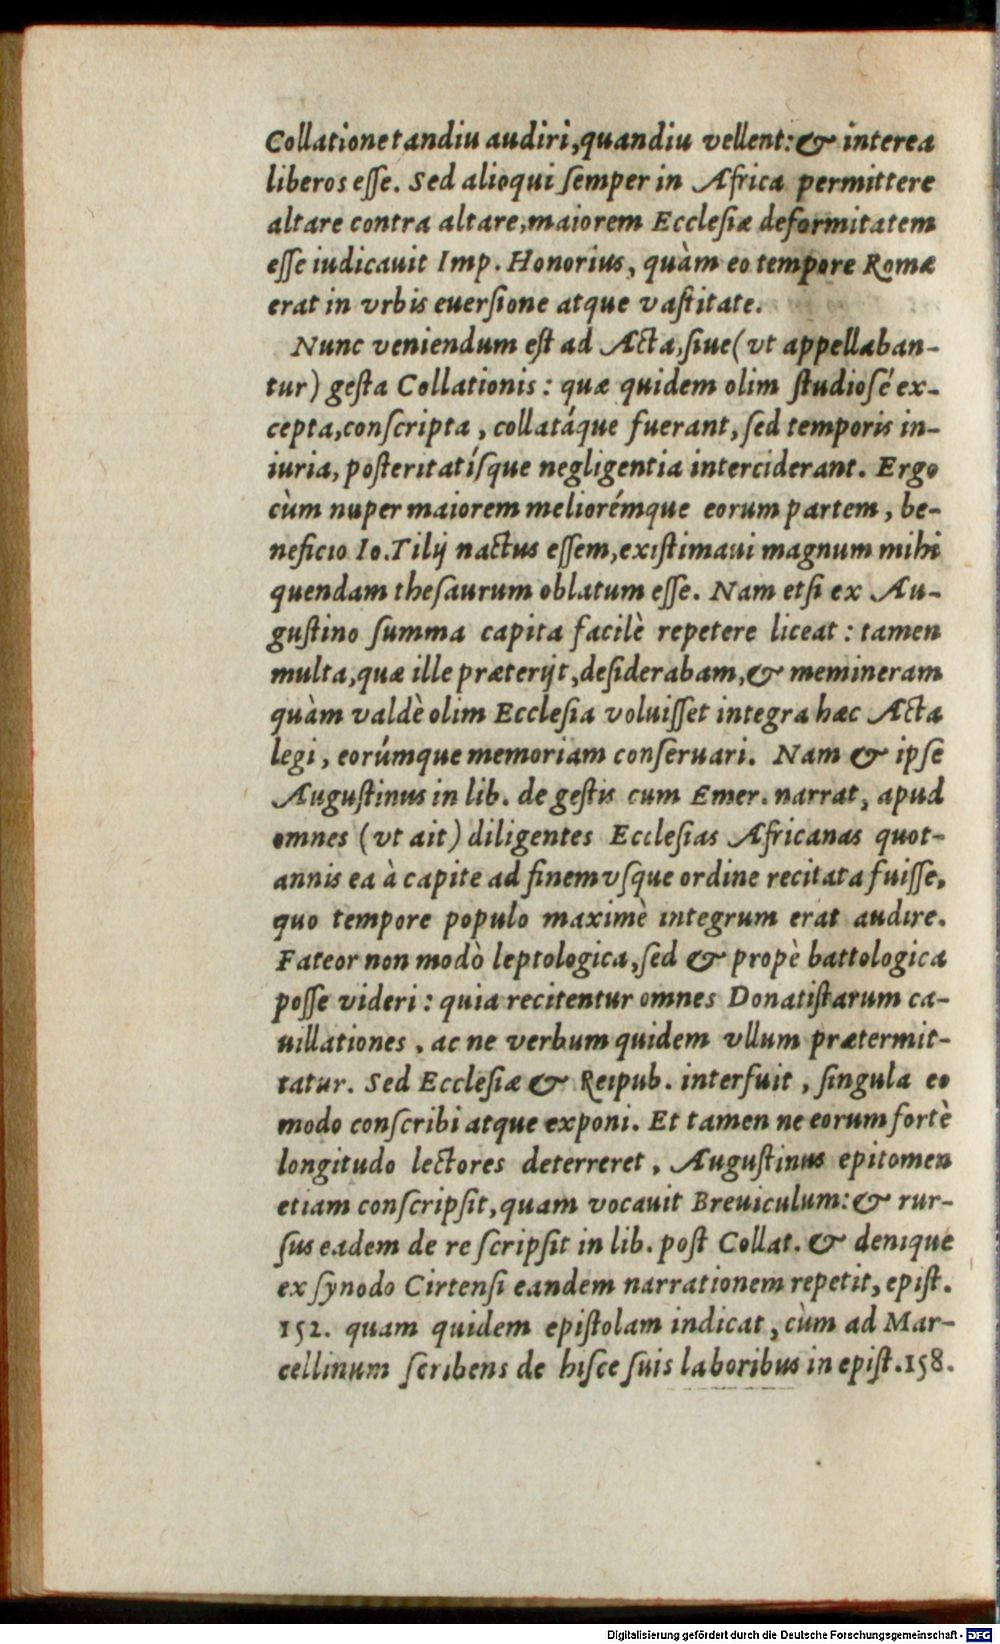 Collatione tandiu audiri, quandiu vellent: & interea
liberos eſſe. Sed alioqui ſemper in Africa permittere
altare contra altare, maiorem Eccleſiæ deformitatem
eſſe iudicauit Imp. Honorius, quàm eo tempore Romæ
erat in vrbis euerſione atque vaſtitate.
Nunc veniendum eſt ad Acta, ſiue (vt appellaban-
tur) geſta Collationis: quæ quidem olim ſtudioſé ex-
cepta, conſcripta, collatáque fuerant, ſed temporis in-
iuria, poſteritatíſque negligentia interciderant. Ergo
cùm nuper maiorem meliorémque eorum partem, be-
neficio Io. Tilij nactus eſſem, exiſtimaui magnum mihi
quendam theſaurum oblatum eſſe. Nam etſi ex Au-
guſtino ſumma capita facilè repetere liceat: tamen
multa, quæ ille præterijt, deſiderabam, & memineram
quàm valdè olim Eccleſia voluiſſet integra hæc Acta
legi, eorúmque memoriam conſeruari. Nam & ipſe
Auguſtinus in lib. de geſtis cum Emer. narrat, apud
omnes (vt ait) diligentes Eccleſias Africanas quot-
annis ea à capite ad finem vſque ordine recitata fuiſſe,
quo tempore populo maximè integrum erat audire.
Fateor non modò leptologica, ſed & propè battologica
poſſe videri: quia recitentur omnes Donatiſtarum ca-
uillationes, ac ne verbum quidem vllum prætermit-
tatur. Sed Eccleſiæ & Reipub. interfuit, ſingula eo
modo conſcribi atque exponi. Et tamen ne eorum fortè
longitudo lectores deterreret, Auguſtinus epitomen
etiam conſcripſit, quam vocauit Breuiculum: & rur-
ſus eadem de re ſcripſit in lib. poſt Collat. & denique
ex ſynodo Cirtenſi eandem narrationem repetit, epiſt.
152. quam quidem epiſtolam indicat, cùm ad Mar-
cellinum ſcribens de hiſce ſuis laboribus in epiſt. 158.
Digitalisierung gefördert durch die Deutsche Forschungsgemeinschaft - DFG